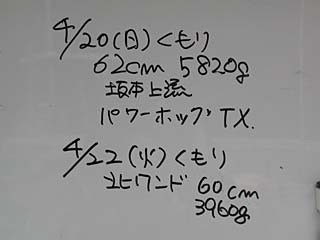 4/20(日)くもり
62cm 5820g
坂本上流
パワーホッグTX.
4/22(火)くもり
北ワンド 60cm
3960g